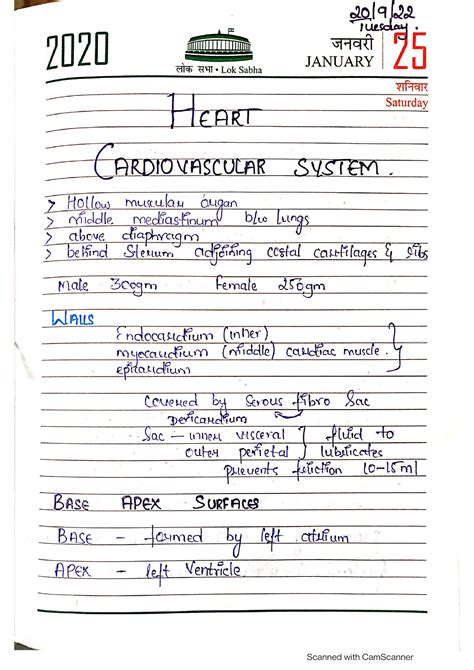 20/9/22
Tuesday.
2020
लोक सभा • Lok Sabha
जनवरी
JANUARY
25
शनिवार
Saturday
HEART
CARDIOVASCULAR SYSTEM.
> Hollow muscular organ
> middle mediastinum b/w lungs
> above diaphragm
> behind Sternum adjoining costal cartilages & ribs
Male 300gm Female 250gm
WALLS
Endocardium (inner)
myocardium (middle) cardiac muscle.
epicardium
Covered by Serous fibro Sac
Pericardium
Sac – inner visceral fluid to
outer perietal lubricates
prevents friction 10-15ml
BASE APEX SURFACES
BASE – formed by left atrium
APEX – left Ventricle.
Scanned with CamScanner